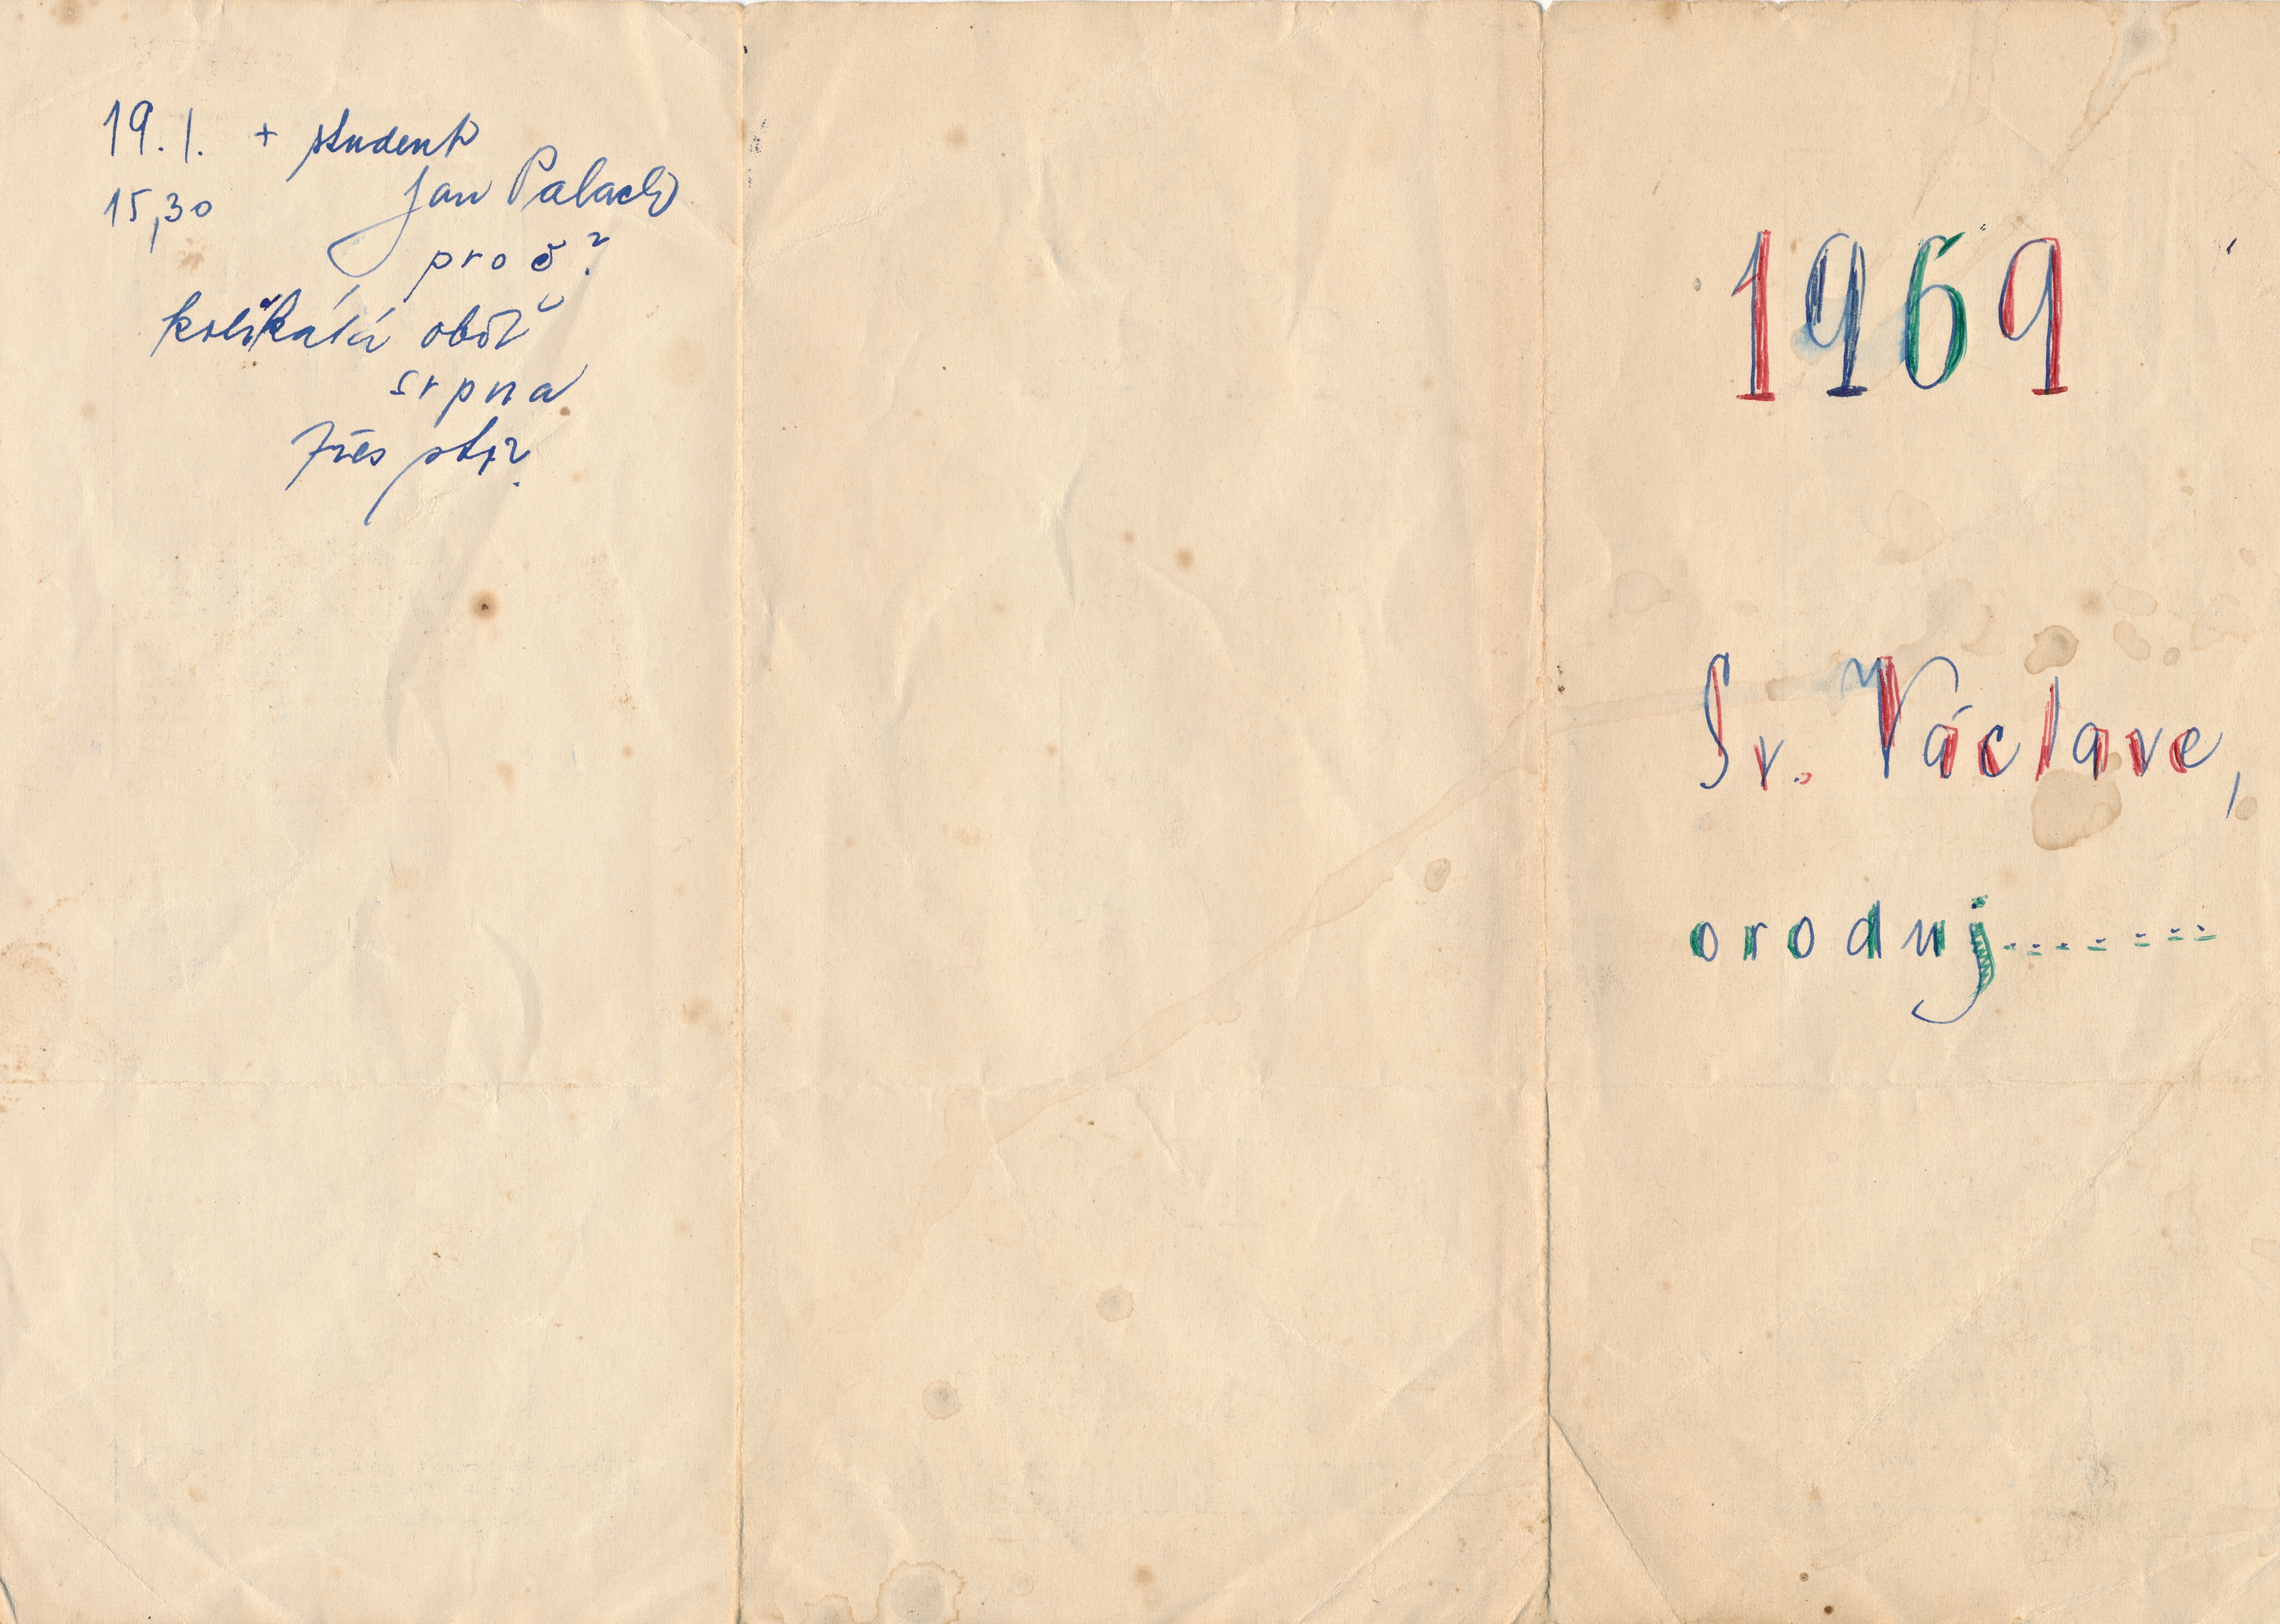 19. 1. + student
15,30 Jan Palach
proč?
kolikátá oběť
srpna
1969
Sv. Václave,
oroduj.......